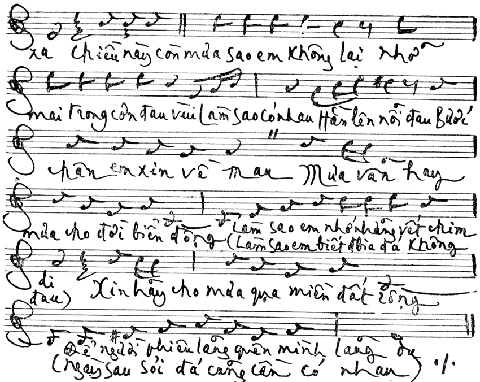 xa chiều nay còn mưa sao em không lại nhớ
mãi trong cơn đau vùi Làm sao có nhau Hằn lên nỗi đau Bước
chân em xin về mau Mưa vẫn hay
mưa cho đời biển động Làm sao em nhớ những vết chim
(Làm sao em biết bia đá không
di Xin hãy cho mưa qua miền đất rộng
đau)
Để người phiêu lãng quên mình lãng du
(ngày sau sỏi đá cũng cần có nhau)